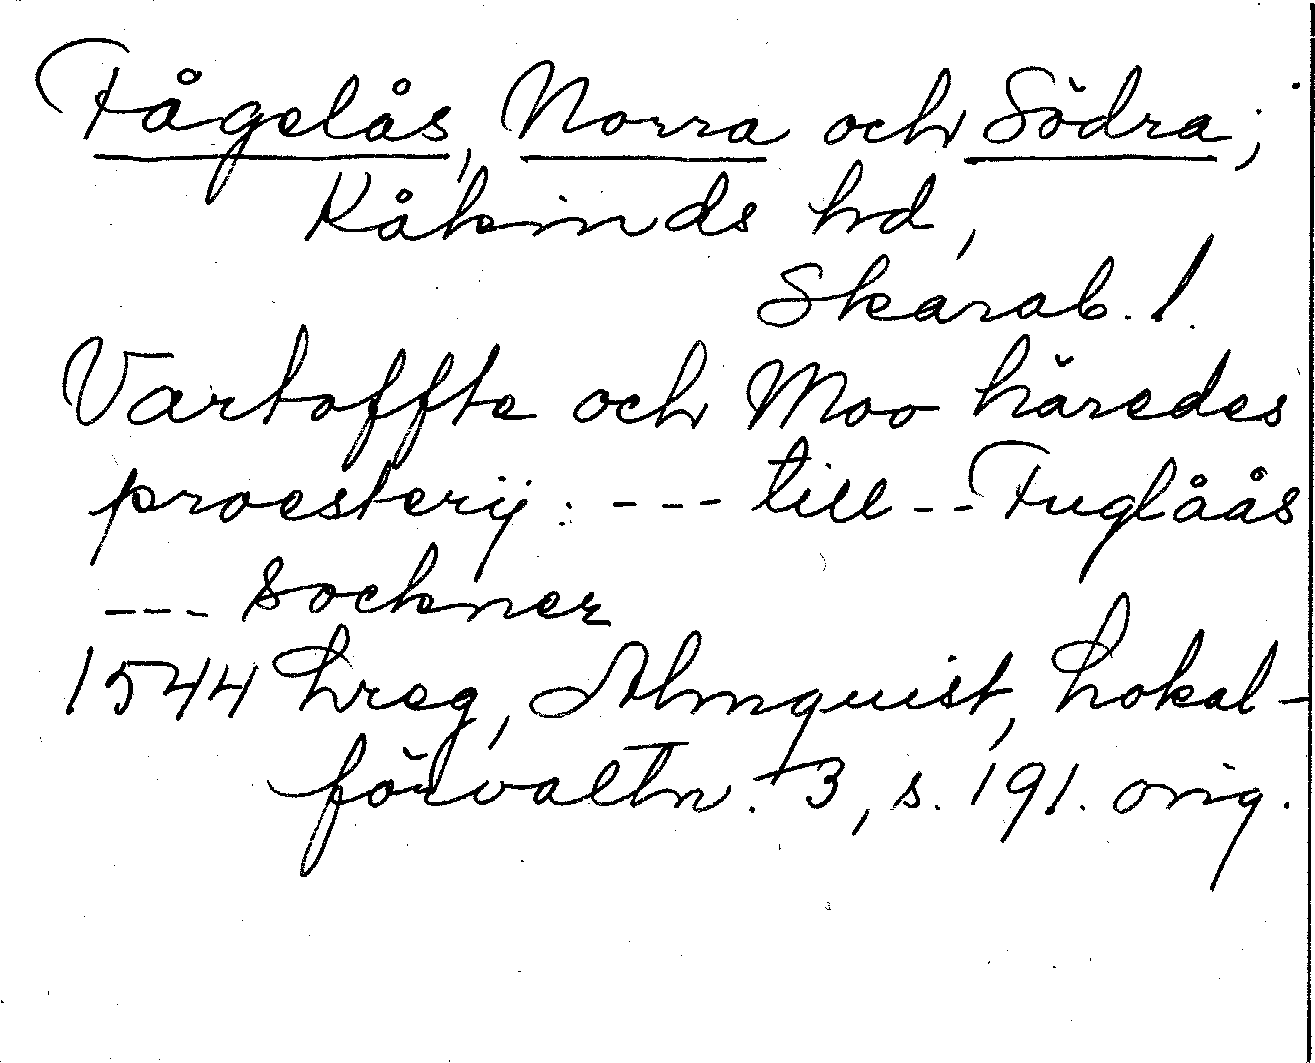 Fågelås, Norra och Södra;
Kåkinds hd,
Skarab. l.
Vartoffte och Moo häredes
proesterij: --- till -- Fuglåås
--- sockner
1544 Lreg, Almquist, Lokal-
förvaltn. 3, s. 191. orig.